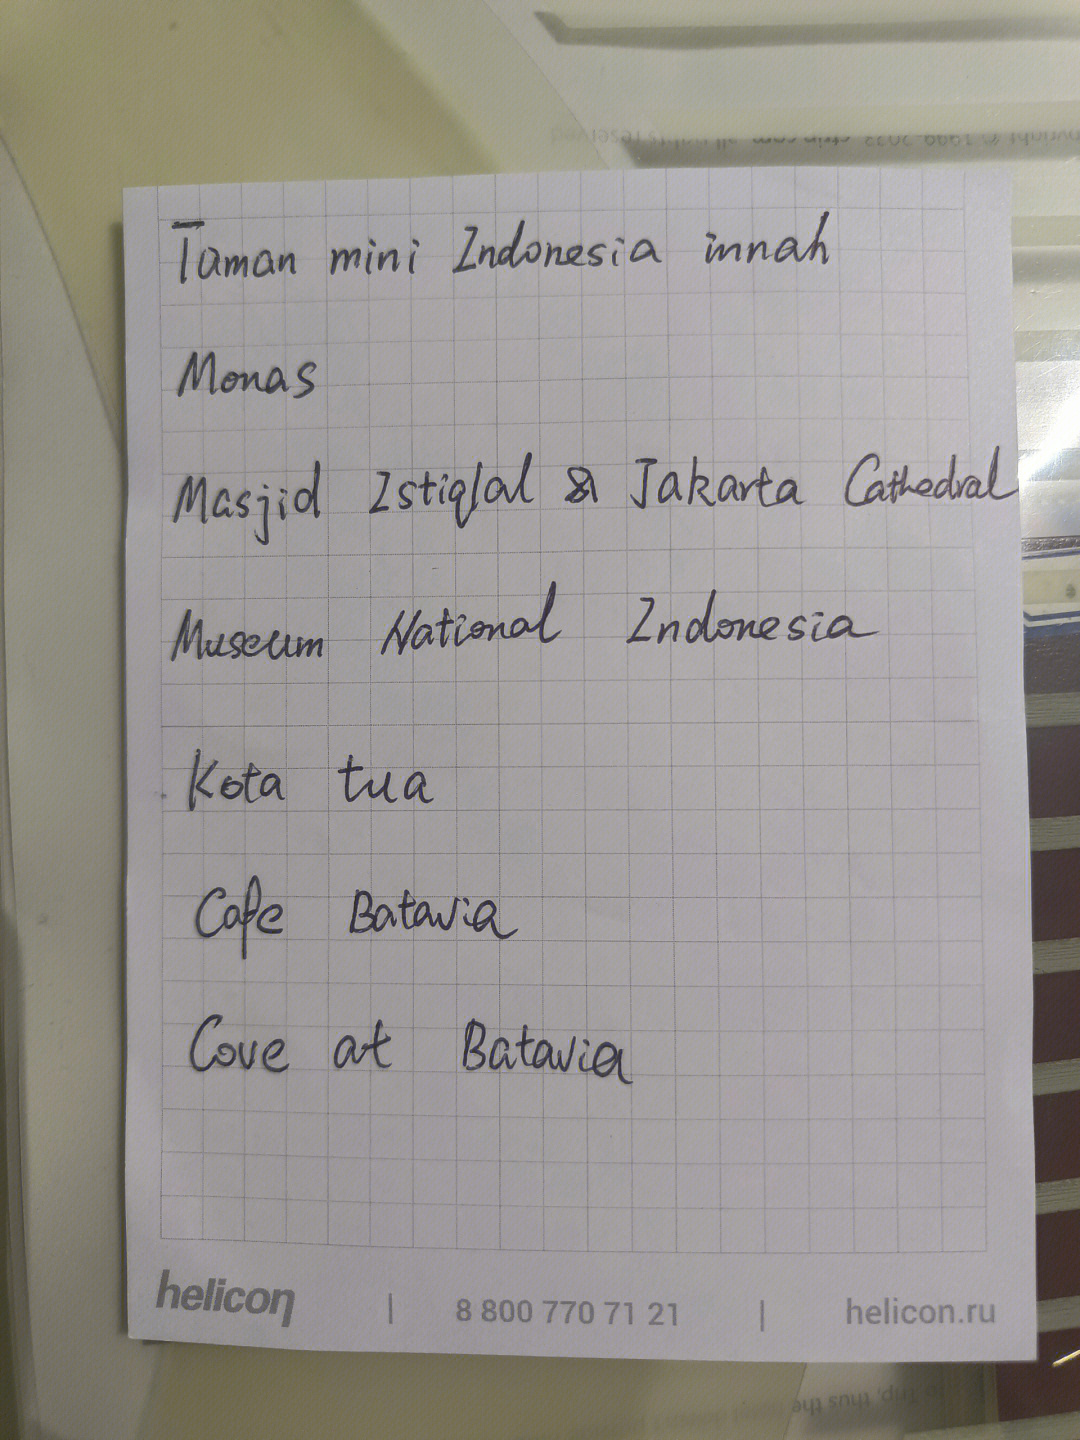 Taman mini Indonesia innah
Monas
Masjid Istiqlal & Jakarta Cathedral
Museum National Indonesia
Kota tua
Cafe Batavia
Cove at Batavia
helicon | 8 800 770 71 21 | helicon.ru